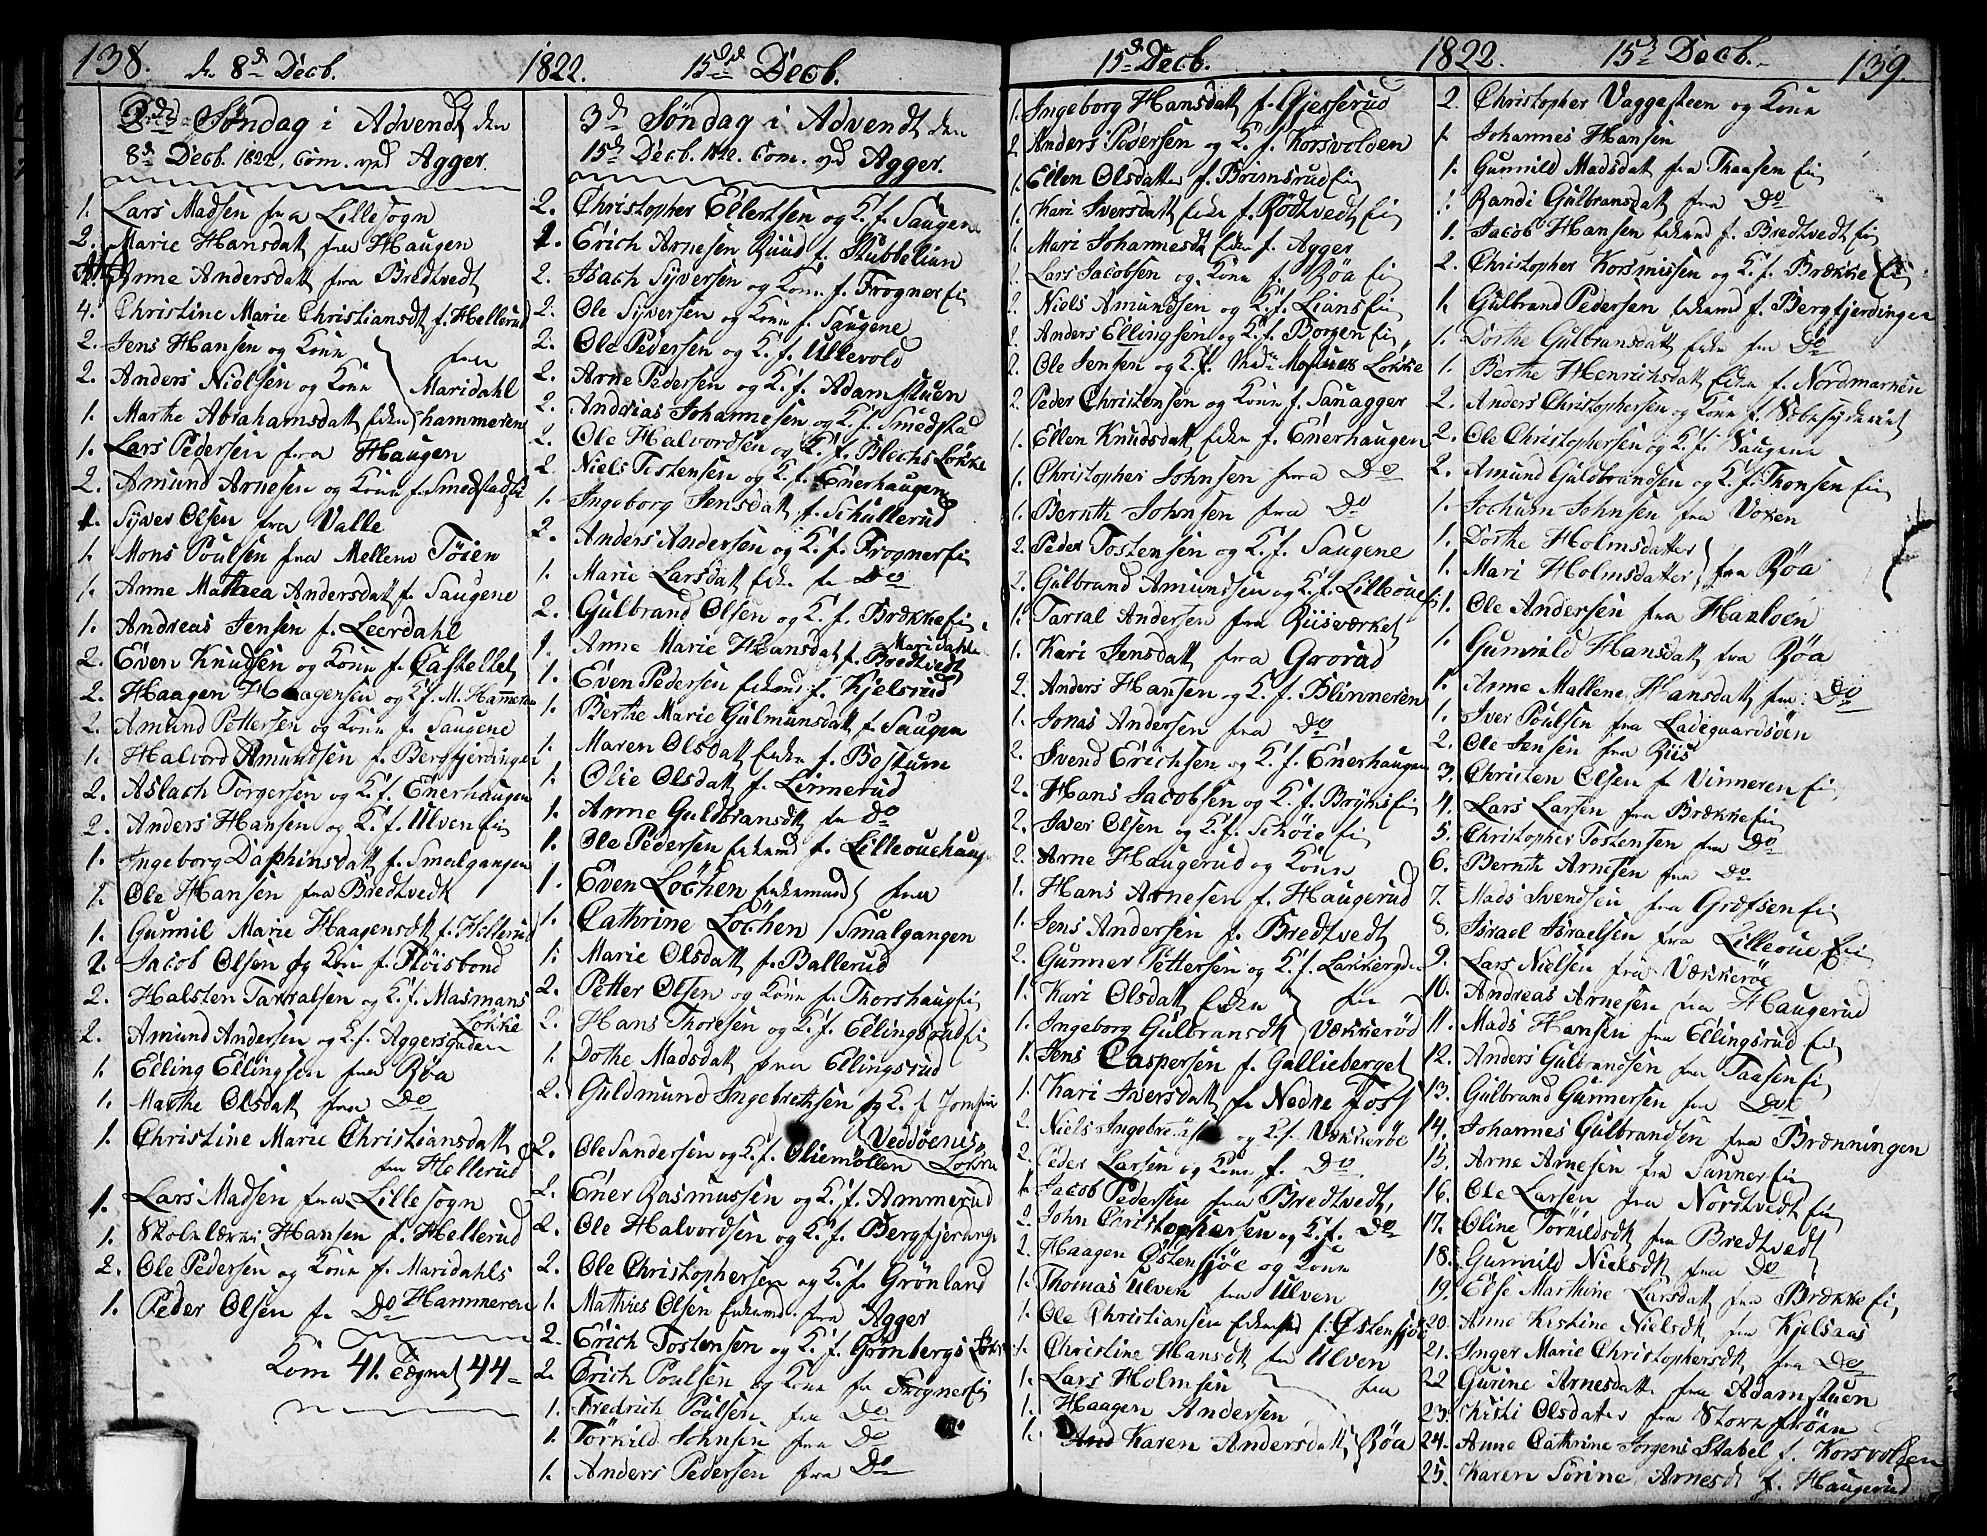 138. d. 8de Decb. 1822. 15de Decb.
2den Søndag i Advendt den
8de Decb. 1822. Com. ved Agger.
1. Lars Madsen fra Lillesogn
2. Marie Hansdatt fra Haugen
Anne Andersdatt fra Bredtvedt
4. Christine Marie Christiansdt f. Hellerud
2. Jens Hansen og Kone } fra
2. Anders Nielsen og Kone } Maridahl
1. Marthe Abrahamsdatt Enke } hammeren
1. Lars Pedersen fra Haugen
2. Amund Arnesen og Kone f. Smedstad
1. Syver Olsen fra Valle
1. Mons Poulsen fra Mellem Töien
1. Anne Mathea Andersdatt f. Saugene
1. Andreas Jensen f. Leerdahl
2. Even Knudsen og Kone f. Castellet
2. Haagen Haagensen og K. f. M. Hammeren
2. Amund Pettersen og Kone f. Saugene
1. Halvord Amundsen f. Bergfjerdingen
2. Aslach Torgersen og K. f. Enerhaugen
2. Anders Hansen og K. f. Ulven Ei
1. Ingeborg Daphinsdatt f. Smalgangen
1. Ole Hansen fra Bredtvedt
1. Gunnil Marie Haagensdt f. Hellerud
2. Jacob Olsen og Kone f. Stöisbond
2. Halsten Tarralsen og K. f. Masmans Løkke
2. Amund Andersen og K. f. Aggersgaden
1. Elling Ellingsen fra Röa
1. Marthe Olsdatt fra Do
1. Christine Marie Christiansdatt
fra Hellerud
1. Lars Madsen fra Lillesogn
1. Skolelærer Hansen f. Hellerud
2. Ole Pedersen og Kone f. Maridahls
Hammeren
1. Peder Olsen f. Do
Kom 41. Tegnet 44
3de Søndag i Advendt den
15de Decb. 1822. Com. ved Agger.
2. Christopher Ellertsen og K. f. Saugene
1. Erich Arnesen Ruud f. Stubbelian
2. Isach Syversen og Kone f. Frogner Ei
2. Ole Syversen og Kone f. Saugene
2. Ole Pedersen og K. f. Ullevold
2. Arne Pedersen og K. f. Adamstuen
2. Andreas Johannesen og K. f. Smedstad
2. Ole Halvordsen og K. f. Blechs Løkke
2. Niels Tostensen og K. f. Enerhaugen
1. Ingeborg Jensdatt f. Schullerud
2. Anders Andersen og K. f. Frogner Ei
1. Marie Larsdatt Enke fr Do
2. Gulbrand Olsen og K. f. Brække Ei
1. Anne Marie Hansdat f. Bredtvedt
1. Even Pedersen Enkemd f. Kjelsrud
1. Berthe Marie Gulmunsdatt f. Saugen
1. Maren Olsdatt Enke f. Bestum
1. Olie Olsdatt f. Linnerud
1. Anne Guldbransdt fr Do
1. Ole Pedersen Enkemd f. Lilleouehaug
1. Even Löchen Enkemand } fra
1. Cathrine Löchen } Smalgangen
1. Marie Olsdatt f. Ballerud
2. Petter Olsen og Kone f. Thorshaug Ei
2. Hans Thoresen og K. f. Ellingsrud Ei
1. Dothe Madsdatt fra Ellingsrud
2. Guldmund Ingebrethsen og K. f.
Veddöenes Løkke
2. Ole Sandersen og K. f. Oliemöllen
2. Ener Rasmussen og K. f. Ammerud
2. Ole Halvordsen og K. f. Bergfjerding
2. Ole Christophersen og K. f. Grönland
1. Mathies Olsen Enkemd. fra Agger
2. Erich Tostensen og K. f. Grönbergs Løkke
2. Erich Poulsen og Kone fr Frogner Ei
1. Fredrich Poulsen fra Do
1. Törkild Johnsen fra Do
1. Anders Pedersen fra Do
15de Decb. 1822. 15de Decb. 139.
1. Ingeborg Hansdatt f. Gjesserud
2. Anders Pedersen og K. f. Korsvolden
1. Ellen Olsdatter f. Brimsrud Ei
1. Kari Iversdatt Enke f. Rödtvedt Ei
1. Mari Johannesdt Enke f. Agger
2. Lars Jacobsen og Kone f. Röa Ei
2. Niels Amundsen og K. f. Lians Ei
2. Anders Ellingsen og K. f. Borgen Ei
2. Ole Jensen og K. f. Løkke
2. Peder Christensen og Kone f. Sanagger
1. Ellen Knudsdatt Enke f. Enerhaugen
1. Christopher Johnsen fra Do
1. Bernth Johnsen fra Do
2. Peder Tostensen og K. f. Saugene
2. Gulbrand Amundsen og K. f. Lilleoue Ei
1. Tarral Andersen fra Riisværket
1. Kari Jensdatt fra Grorud
2. Anders Hansen og K. f. Blinneren
1. Jonas Andersen fra Do
2. Svend Erichsen og K. f. Enerhaugen
2. Hans Jacobsen og K. f. Bryns Ei
2. Iver Olsen og K. f. Schöie Ei
2. Arne Haugerud og Kone
1. Hans Arnesen f. Haugerud
1. Jens Andersen f. Bredtvedt
2. Gunner Pettersen og K. f. Lakkergden
1. Kari Olsdatt Enke } fra
1. Ingeborg Gulbransdt } Vækkeröd
1. Jens Caspersen f. Gallieberget
1. Kari Iversdatt fr Nedre Foss
2. Niels og K. f. Vækkeröe
2. Peder Larsen og Kone f. Do
1. Jacob Pedersen fra Bredtvedt
2. John Christophersen og K. f. Do
2. Haagen Östensjöe og Kone
1. Thomas Ulven fra Ulven
1. Ole Christiansen Enkemd f. Östensjöe
1. Christine Hansdt fra Ulven
1. Lars Holmsen } fra
1. Haagen Andersen
1. Karen Andersdatt } Röa
2. Christopher Vaggesteen og Kone
1. Johannes Hansen
1. Gunnild Madsdatt fra Thaasen Ei
1. Randi Gulbransdatt fra Do
1. Jacob Hansen Enkemd f. Bredtvedt Ei
2. Christopher Korsmissen og K. f. Brække Ei
1. Gulbrand Pedersen Enkemd f. Bergfjerdingen
1. Dorthe Gulbransdatt Enke fra Do
1. Berthe Henrichsdatt Enke f. Nordmarken
2. Anders Christophersen og Kone f. Sæbesyderiet
2. Ole Christophersen og K. f. Saugene
2. Amund Guldbrandsen og K. f. Thonsen Ei
1. Jochum Johnsen fra Voxen
1. Dorthe Holmsdatter } fra Röa
1. Mari Holmsdatter
1. Ole Andersen fra Hanloen
1. Gunnild Hansdatt fra Röa
1. Anne Mallene Hansdatt fra Do
1. Iver Poulsen fra Ladegaardsöen
2. Ole Jensen fra Riis
3. Christen Olsen f. Vinneren Ei
4. Lars Larsen fra Brække Ei
5. Christopher Tostensen fra Do
6. Bernth Arnesen fra Do
7. Mads Svendsen fra Grefsen Ei
8. Israel Israelsen fra Lilleoue Ei
9. Lars Nielsen fra Vækkeröe
10. Andreas Arnesen fra Haugerud
11. Mads Hansen fra Ellingsrud Ei
12. Anders Gulbrandsen fra Taasen Ei
13. Gulbrand Gunnersen fra Do
14. Johannes Gulbrandsen fra Brænningen
15. Arne Arnesen fra Sanner Ei
16. Ole Larsen fra Nordtvedt Ei
17. Oline Törkildsdt fra Bredtvedt
18. Gunnild Nielsdt fra Do
19. Else Marthine Larsdatt fra Brække Ei
20. Anne Kirstine Nielsdt fra Kjelsaas
21. Inger Marie Christophersdt fra Do
22 Gurine Arnesdatt fra Adamstuen
23. Kirsti Olsdatter fra Store Fröen
24. Anne Cathrine Jorgens Stabel f. Korsvolden
25. Karen Sörine Arnesd f. Haugerud